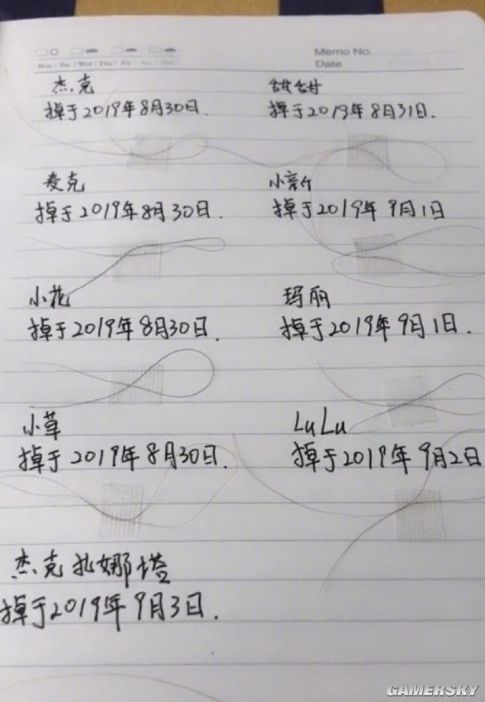 Memo No.
Date
Mon Tue Wed Thu Fri Sat Sun
杰克
掉于2019年8月30日.
甜甜
掉于2019年8月31日.
麦克
掉于2019年8月30日.
小新
掉于2019年9月1日
小花
掉于2019年8月30日.
玛丽
掉于2019年9月1日.
小草
掉于2019年8月30日.
LuLu
掉于2019年9月2日
杰克扎娜塔
掉于2019年9月3日.
GAMERSKY